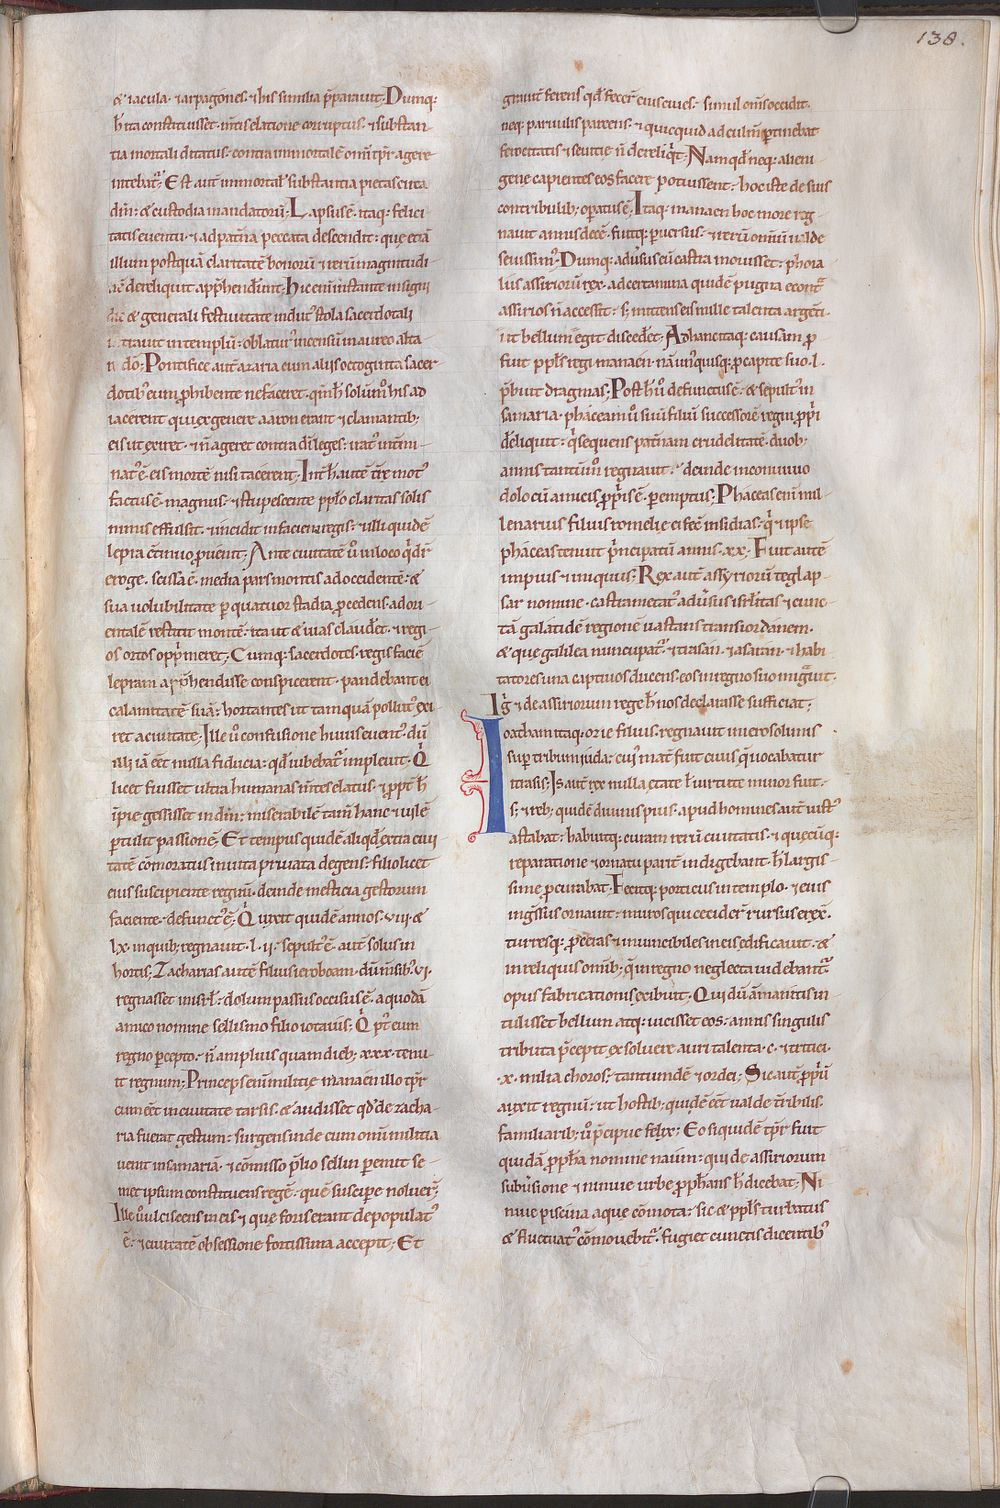 138.
& iacula· ⁊ arpagones· ⁊ his similia p̄parauit; Dumq;
h̄ ita constituisset· m̄tis elatione corruptus· ⁊ substan-
tia mortali ditatus· contra immortalē om̄i tp̄r agere
intebat᷑; Est aut̄ immortal᷒ substantia pietas circa
dm̄· & custodia mandatorū; Lapsus ē· itaq; felici
tatis euentu· ⁊ ad pat̄na peccata descendit· que etiā
illum postquā claritatē bonorū ⁊ rerū magnitudi
nē dereliquit app̄hendeȓnt; Hic enī instante insigni
die & generali festiuitate indut᷒ stola sacerdotali
intrauit in templū· oblatur᷒ incensū in aureo alta
ri dō; Pontifice aut̄ azaria cum aliis octoginta sacer
dotib᷒ eum p̄hibente ne faceret· qm̄ h̄ solum᷒ his ad
iacerent qui ex genere aaron erant ⁊ clamantib;
eis ut exiret· ⁊ n̄ ageret contra dī leges· irat᷒ int̄mi-
nat᷒ ē eis mortē nisi tacerent; Int̄ h̄ autē t̄re mot᷒
factus ē magnus· ⁊ stupescente pp̄lo claritas solis
nimis effulsit· ⁊ incidit in faciem regis· ⁊ illi quidē
lepra c̄tinuo p̄uenit; Ante ciuitatē u̅ in loco q̇ dr̄
eroge· scissa ē· media pars montis ad occidentē· &
sua uolubilitate p quatuor stadia p̄cedens· ad ori-
entalē restitit montē· ita ut & uias clauderet· ⁊ regi-
os ortos opp̄meret; Cumq; sacerdotes regis faciē
lepram app̄hendisse conspicerent· pandebant ei
calamitatē suā· hortantes ut tamquā pollut᷒ exi-
ret a ciuitate; Ille u̅ confusione huius euent᷒· dū
illi iā ēet nulla fiducia· qd̄ iubebat᷑ impleuit· Q̇
licet fuisset ultra humanas m̄tes elatus· ⁊ ꝓpt̄ h̄
īpie gessisset in dm̄· miserabilē tam̄ hanc ⁊ uilē
ptulit passionē; Et tempus quidē aliqd̄ extra ciui
tatē cōmoratus in uita priuata degens· filio licet
eius suscipiente regnū· deinde mesticia gestorum
faciente· defunct᷒ ē; Qui uixit quidē annos· viii· &
lx· in quib; regnauit· l· ii· sepult᷒ ē· aut̄ solus in
hortis; Zacharias autē filius ieroboam· dū m̄sib᷒ vi·
regnasset in isrl̄· dolum passus occisus ē· a quodā
amico nomine sellismo filio iotauis; Q pt̄ eum
regno pcepto· n̄ amplius quam dieb; xxx· tenu-
it regnum; Princeps enī militie manaen illo tp̄r
cum ēet in ciuitate tarsis· & audisset qd̄ de zacha-
ria fuerat gestum· surgens inde cum omī militia
uenit in samariā· ⁊ cōmisso p̄lio sellin pemit· se-
met ipsum constituens regē· quē suscipe noluer̄;
Ille u̅ ulciscens in eis ⁊ que foris erant depopulat᷒
ē· ⁊ ciuitatē obsessione fortissima accepit; Et
grauit̄ ferens qd̄ fecer̄ eius ciues· simul om̄s occidit·
neq; paruulis parcens· ⁊ quicquid ad culm̄ ptinebat
ferocitatis ⁊ seuitie n̄ dereliq̇t; Nam qd̄ neq; alieni-
gene capientes eos facere potuissent· hoc iste de suis
contribulib; opatus ē; Itaq; manaen hoc more reg-
nauit annis decē· fuitq; puersus· ⁊ rerū omniū ualde
seuissim᷒; Dumq; aduersus eū castra mouisset· phora
lus assiriorū rex· ad certamina quidē pugna contra
assirios n̄ accessit· s; mittens eis mille talenta argenti·
ut bellum egit discederet; Ad hanc itaq; causam p
fuit pp̄ls regi manaen· nā un᷒quisq; p capite suo· l·
p̄buit dragmas; Post h̄ u̅ defunctus ē· & sepult᷒ in
samaria· phaceam u̅ suū filiū successorē regni ppri
dereliquit· q̇ sequens patnam crudelitatē· duob;
annis tantum᷒ regnauit· deinde in conuiuio
dolo cū amicis ppriis ē· pemptus; Phaceas enī mil-
lenarius filius romelie ei fecit insidias· q̇ ⁊ ipse
phaceas tenuit p̄ncipatū annis· xx; Fuit autē
impius ⁊ iniquus; Rex aut̄ assyriorū teglap-
sar nomine· castrametat᷒ aduersus isrl̄itas ⁊ cunc-
tā galatidē regionē uastans trans iordanem·
& que galilea nuncupat᷑ ⁊ cirasan· ⁊ asaran· ⁊ habi-
tatores una captiuos ducens· eos in regno suo mig̅uit·
Ig̅ ⁊ de assiriorum rege h̄ nos declarasse sufficiat;
Ioatham itaq; orie filius· regnauit in ierosolimis
sup tribum iuda· cui᷒ mat̄ fuit ciuis q̄ uocabatur
itiasis; Is aut̄ rex nulla etate l᷒ uirtute minor fuit·
s; ⁊ reb; quidē diuinis pius· apud homines autē iust᷒
astabat· habuitq; curam rerū ciuitatis· ⁊ quecūq;
reparatione ⁊ ornatu parit̄ indigebant· h̄ largis-
sime pcurabat· Fecitq; porticus in templo· ⁊ eius
ing̅ssus ornauit· muros qui cecider̄ rursus erex̄·
turresq; pcelsas ⁊ inuincibiles in eis edificauit· &
in reliquis omīb; q̄ in regno neglecta uidebant᷑
opus fabricationis exibuit; Qui dū āmanitis in
tulisset bellum atq; uicisset eos· annis singulis
tributa p̄cepit exsoluere auri talenta· c· ⁊ tritici·
·x· milia choros· tantundē ⁊ ordei; Sic aut̄ ppriū
auxit regnū· ut hostib; quidē ēet ualde t̄ribilis·
familiarib; u̅ p̄cipue felix; Eo siquidē tp̄r fuit
quidā pp̄ha nomine naum· qui de assiriorum
subuersione ⁊ niniue urbe pp̄hans h̄ dicebat; Ni-
niue piscina aque cōmota· sic & pp̄ls turbatus
& fluctuat᷒ cōmouebit᷑· fugiet cunctis dicentib᷒